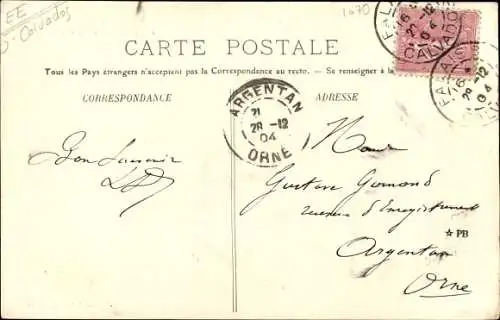 EE
Calvados
1070
CARTE POSTALE
Tous les Pays étrangers n'acceptent pas la Correspondance au recto. — Se renseigner à la
CORRESPONDANCE
ADRESSE
FALA
28-12
04
CALVADOS
FALA
28-12
04
ARGENTAN
21
28-12
04
ORNE
Bon Souvenir
Gustave
d'Enregistrement
☆ PB
Argentan
Orne